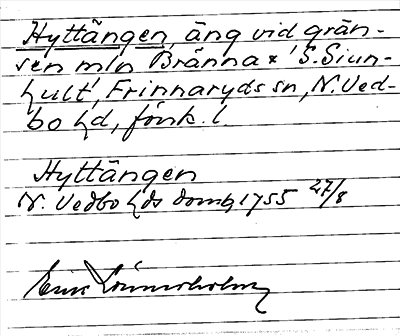 Hyttängen, äng vid grän-
sen m/n Bränna & S. Siun-
hult, Frinnaryds sn, N. Ved-
bo hd, förk. l.
Hyttängen
N. Vedbo hds domb 1755 27/8
Erik